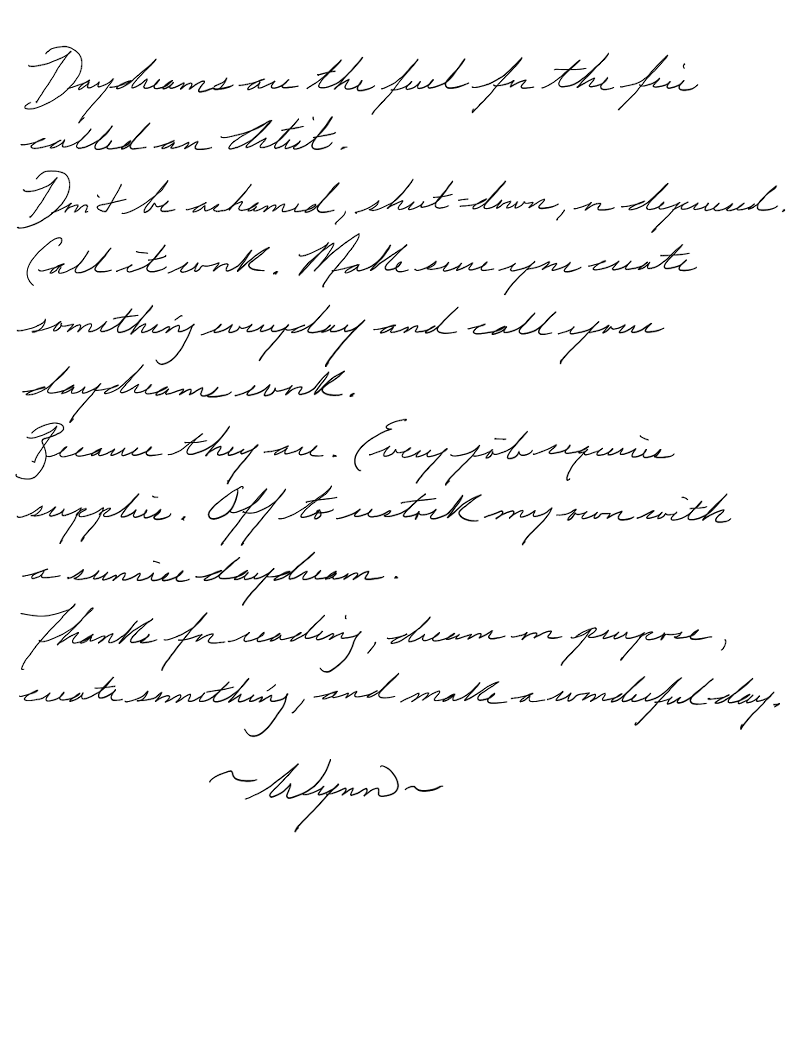 Daydreams are the fuel for the fire
called an Artist.
Don't be ashamed, shut-down, or depressed.
Call it work. Make sure you create
something everyday and call your
daydreams work.
Because they are. Every job requires
supplies. Off to restock my own with
a sunrise daydream.
Thanks for reading, dream on purpose,
create something, and make a wonderful day.
~Wynn~